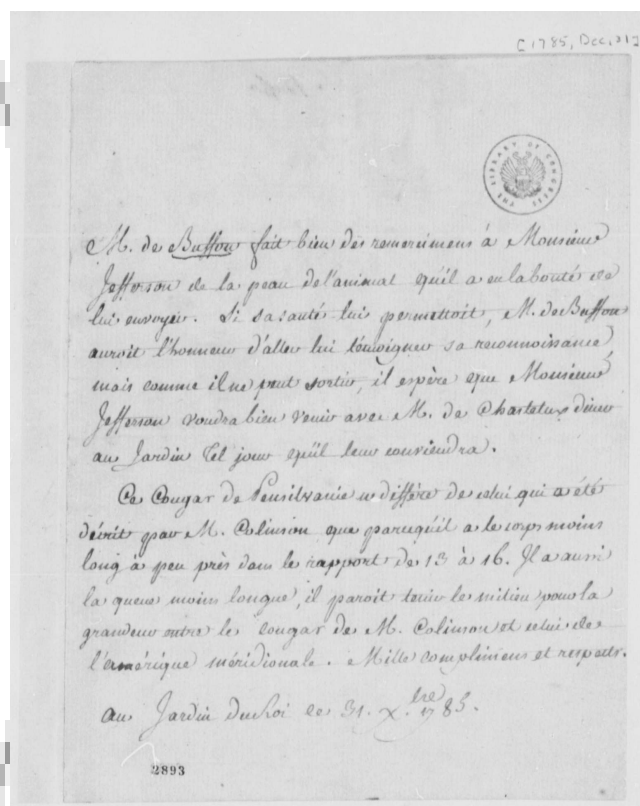 [1785, Dec. 31]
THE LIBRARY OF CONGRESS
M. de Buffon fait bien des remercimens à Monsieur
Jefferson de la peau de l'animal qu'il a eu la bonté de
lui envoyer. Si sa santé lui permettoit, M. de Buffon
auroit l'honneur d'aller lui témoigner sa reconnoissance,
mais comme il ne peut sortir, il espère que Monsieur
Jefferson voudra bien venir avec M. de Chartelux diner
au Jardin tel jour qu'il leur conviendra.
Ce Cougar de Pensilvanie ne diffère de celui qui a été
décrit par M. Colinson que parcequ'il a le corps moins
long à peu près dans le rapport de 13 à 16. Il a aussi
la queue moins longue, il paroit tenir le milieu pour la
grandeur entre le cougar de M. Colinson et celui de
l'amérique méridionale. Mille complimens et respects.
au Jardin du Roi le 31. X.bre 1785.
2893